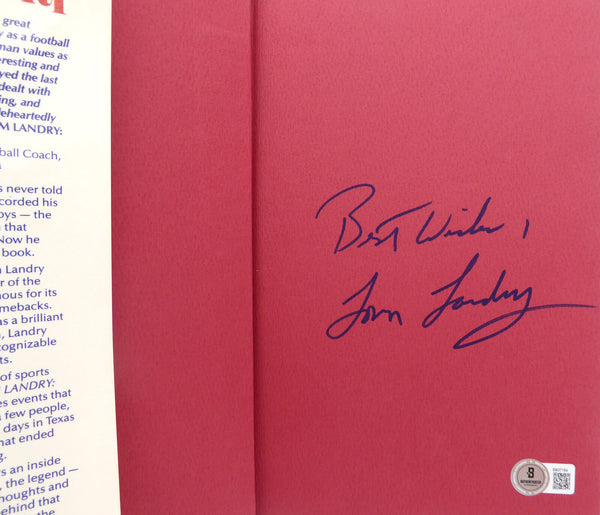 great
y as a football
man values as
resting and
yed the last
dealt with
ing, and
leheartedly
M LANDRY:
ball Coach,
s never told
corded his
oys — the
that
Now he
book.
Landry
r of the
nous for its
mebacks.
as a brilliant
, Landry
cognizable
ts.
of sports
LANDRY:
es events that
few people,
days in Texas
hat ended
g.
s an inside
, the legend —
houghts and
behind that
the
Best Wishes,
Tom Landry